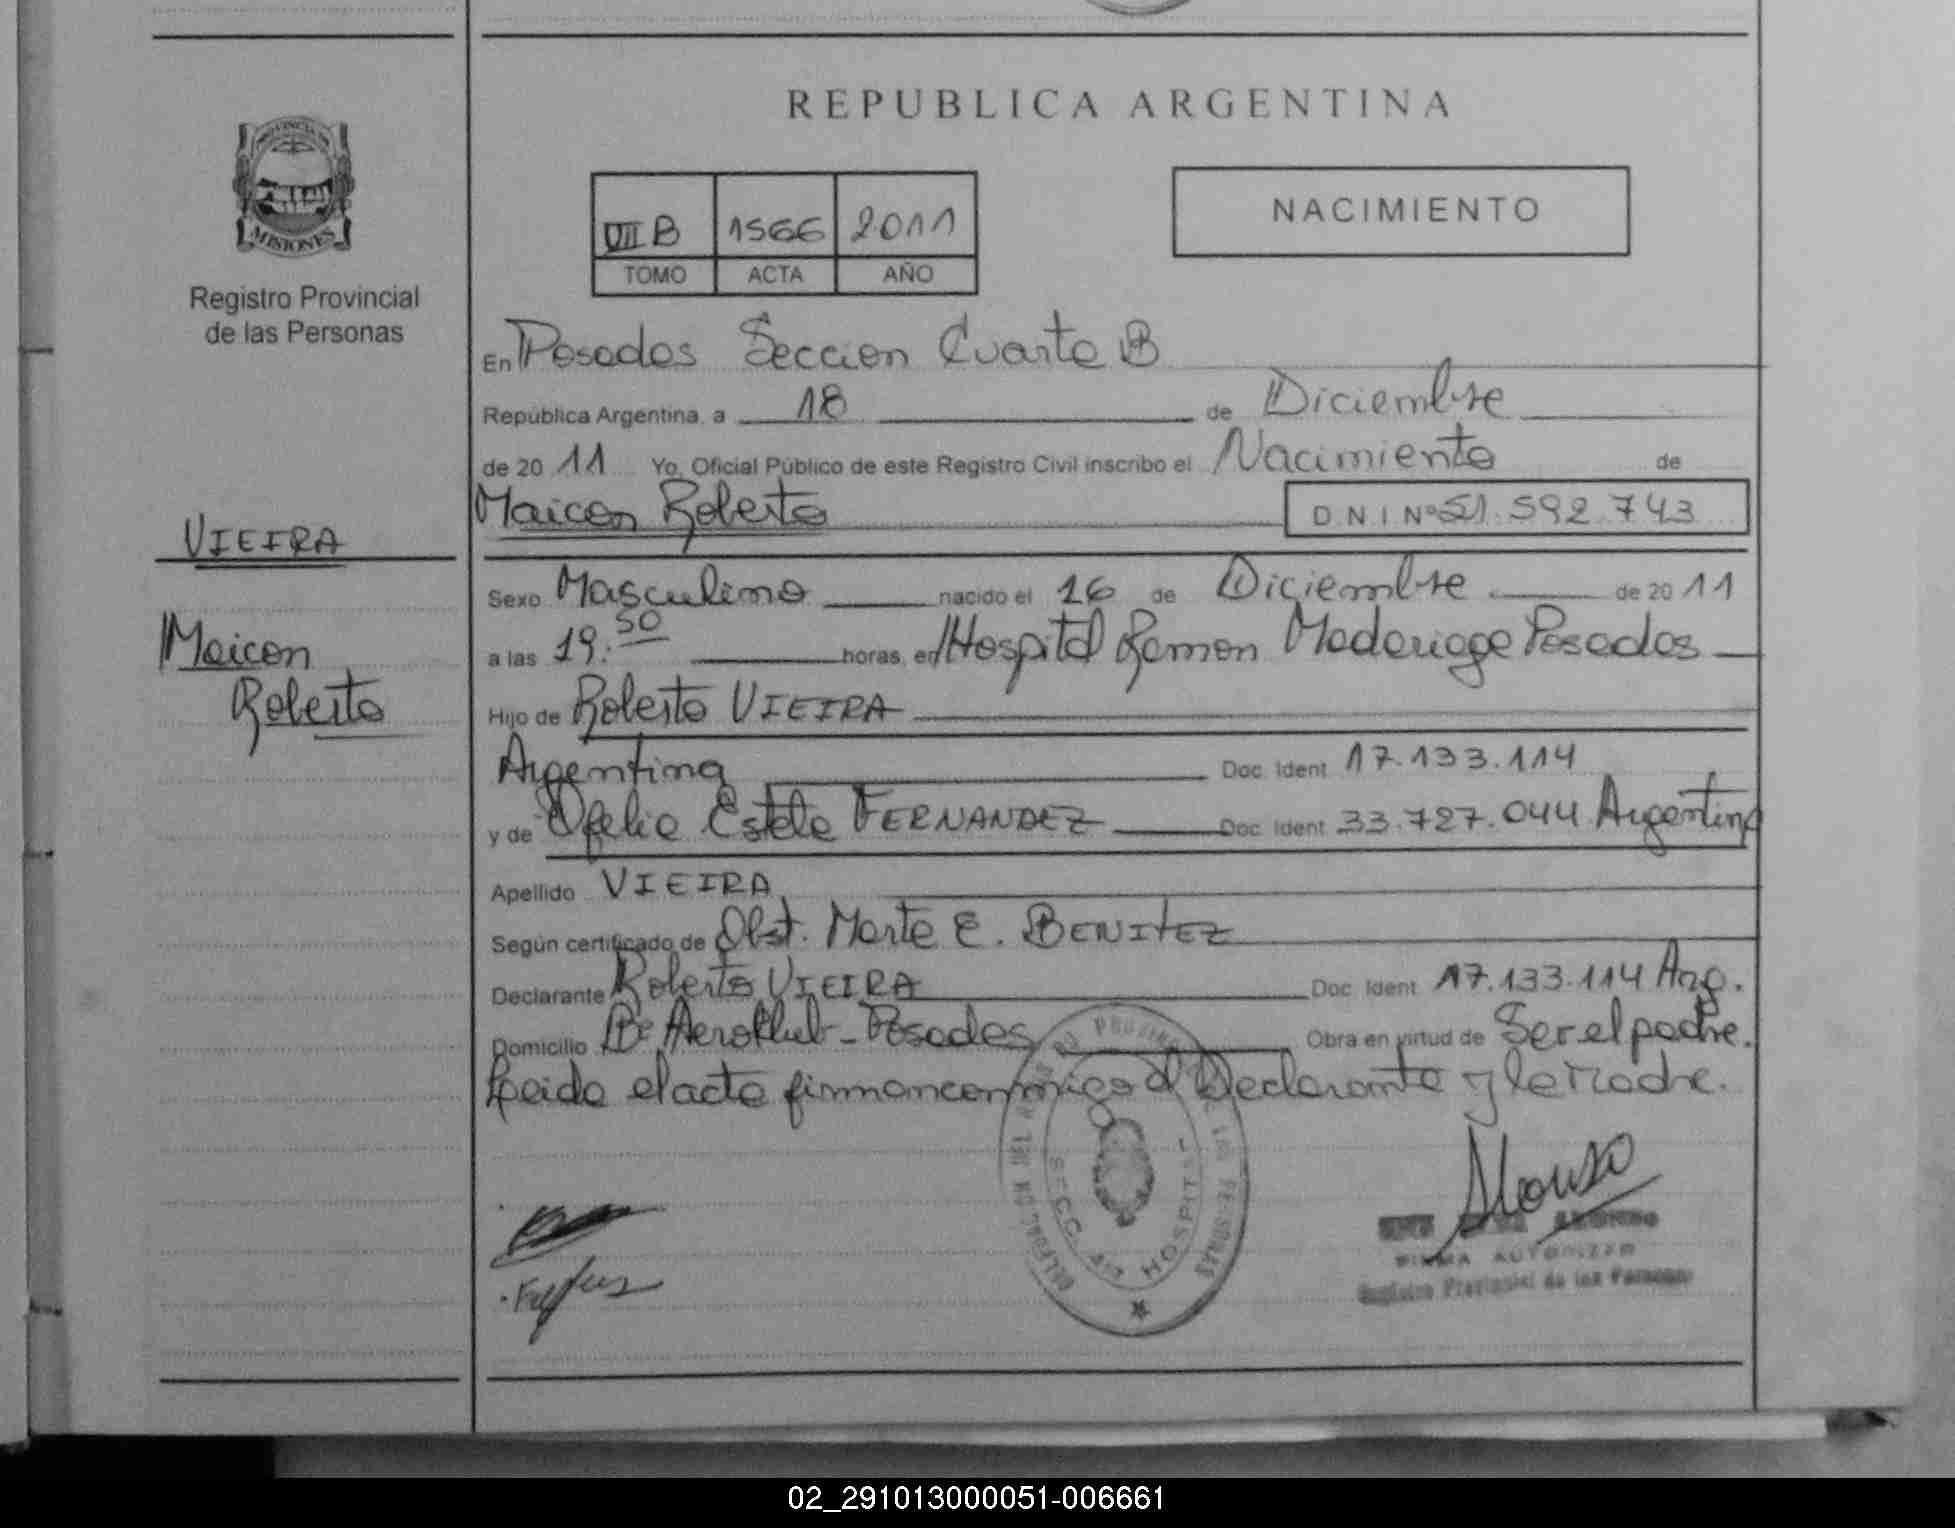 REPUBLICA ARGENTINA
PROVINCIA DE
MISIONES
Registro Provincial
de las Personas
VII B 1566 2011
TOMO ACTA AÑO
NACIMIENTO
En Posadas Seccion Cuarta B
República Argentina, a 18 de Diciembre
de 20 11 Yo, Oficial Público de este Registro Civil inscribo el Nacimiento de
Maicon Roberto D.N.I Nº 51.592.743
VIEIRA
Maicon
Roberto
Sexo Masculino nacido el 16 de Diciembre de 20 11
a las 19:50 horas, en Hospital Ramon Madariaga Posadas
Hijo de Roberto VIEIRA
Argentina Doc. Ident. 17.133.114
y de Ofelia Estela FERNANDEZ Doc. Ident. 33.727.044 Argentina
Apellido VIEIRA
Según certificado de Obst. Marta E. BENITEZ
Declarante Roberto VIEIRA Doc. Ident. 17.133.114 Arg.
Domicilio Bº Aeroklub - Posadas Obra en virtud de Ser el padre.
Leida el acta firman conmigo el Declarante y la Madre.
SECC. HOSPIT
Alonso
ALONSO
FIRMA AUTORIZAD
Registro Provincial de las Personas
02_291013000051-006661